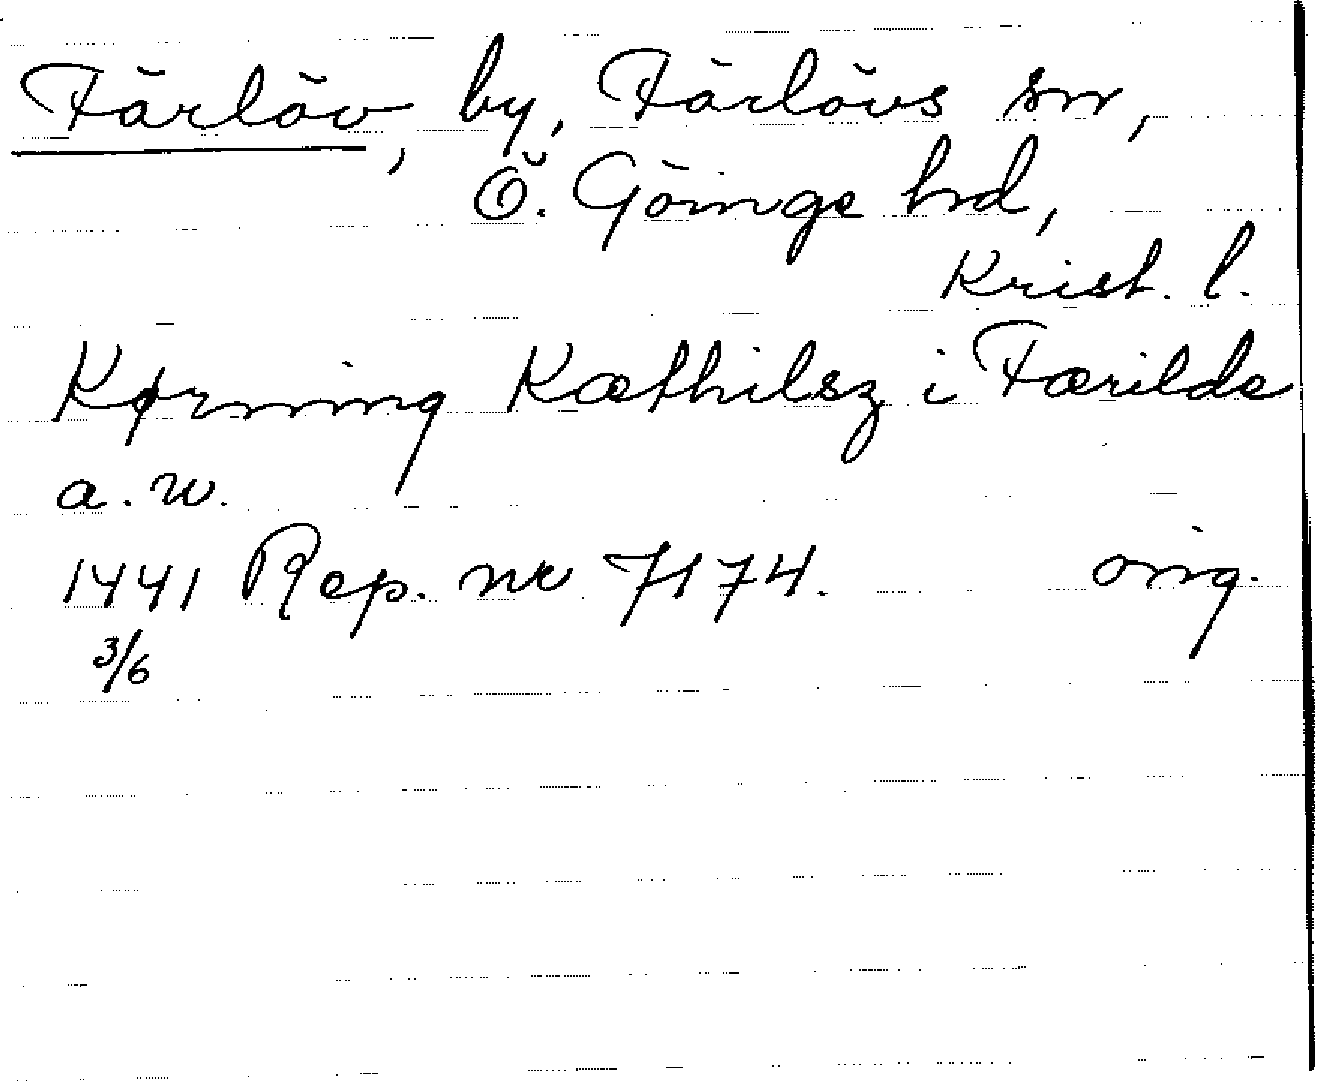 Färlöv, by, Färlövs sn,
Ö. Göinge hd,
Krist. l.
Kørning Kæthilsz i Færilde
a. w.
1441 Rep. nr 7174. orig.
3/6